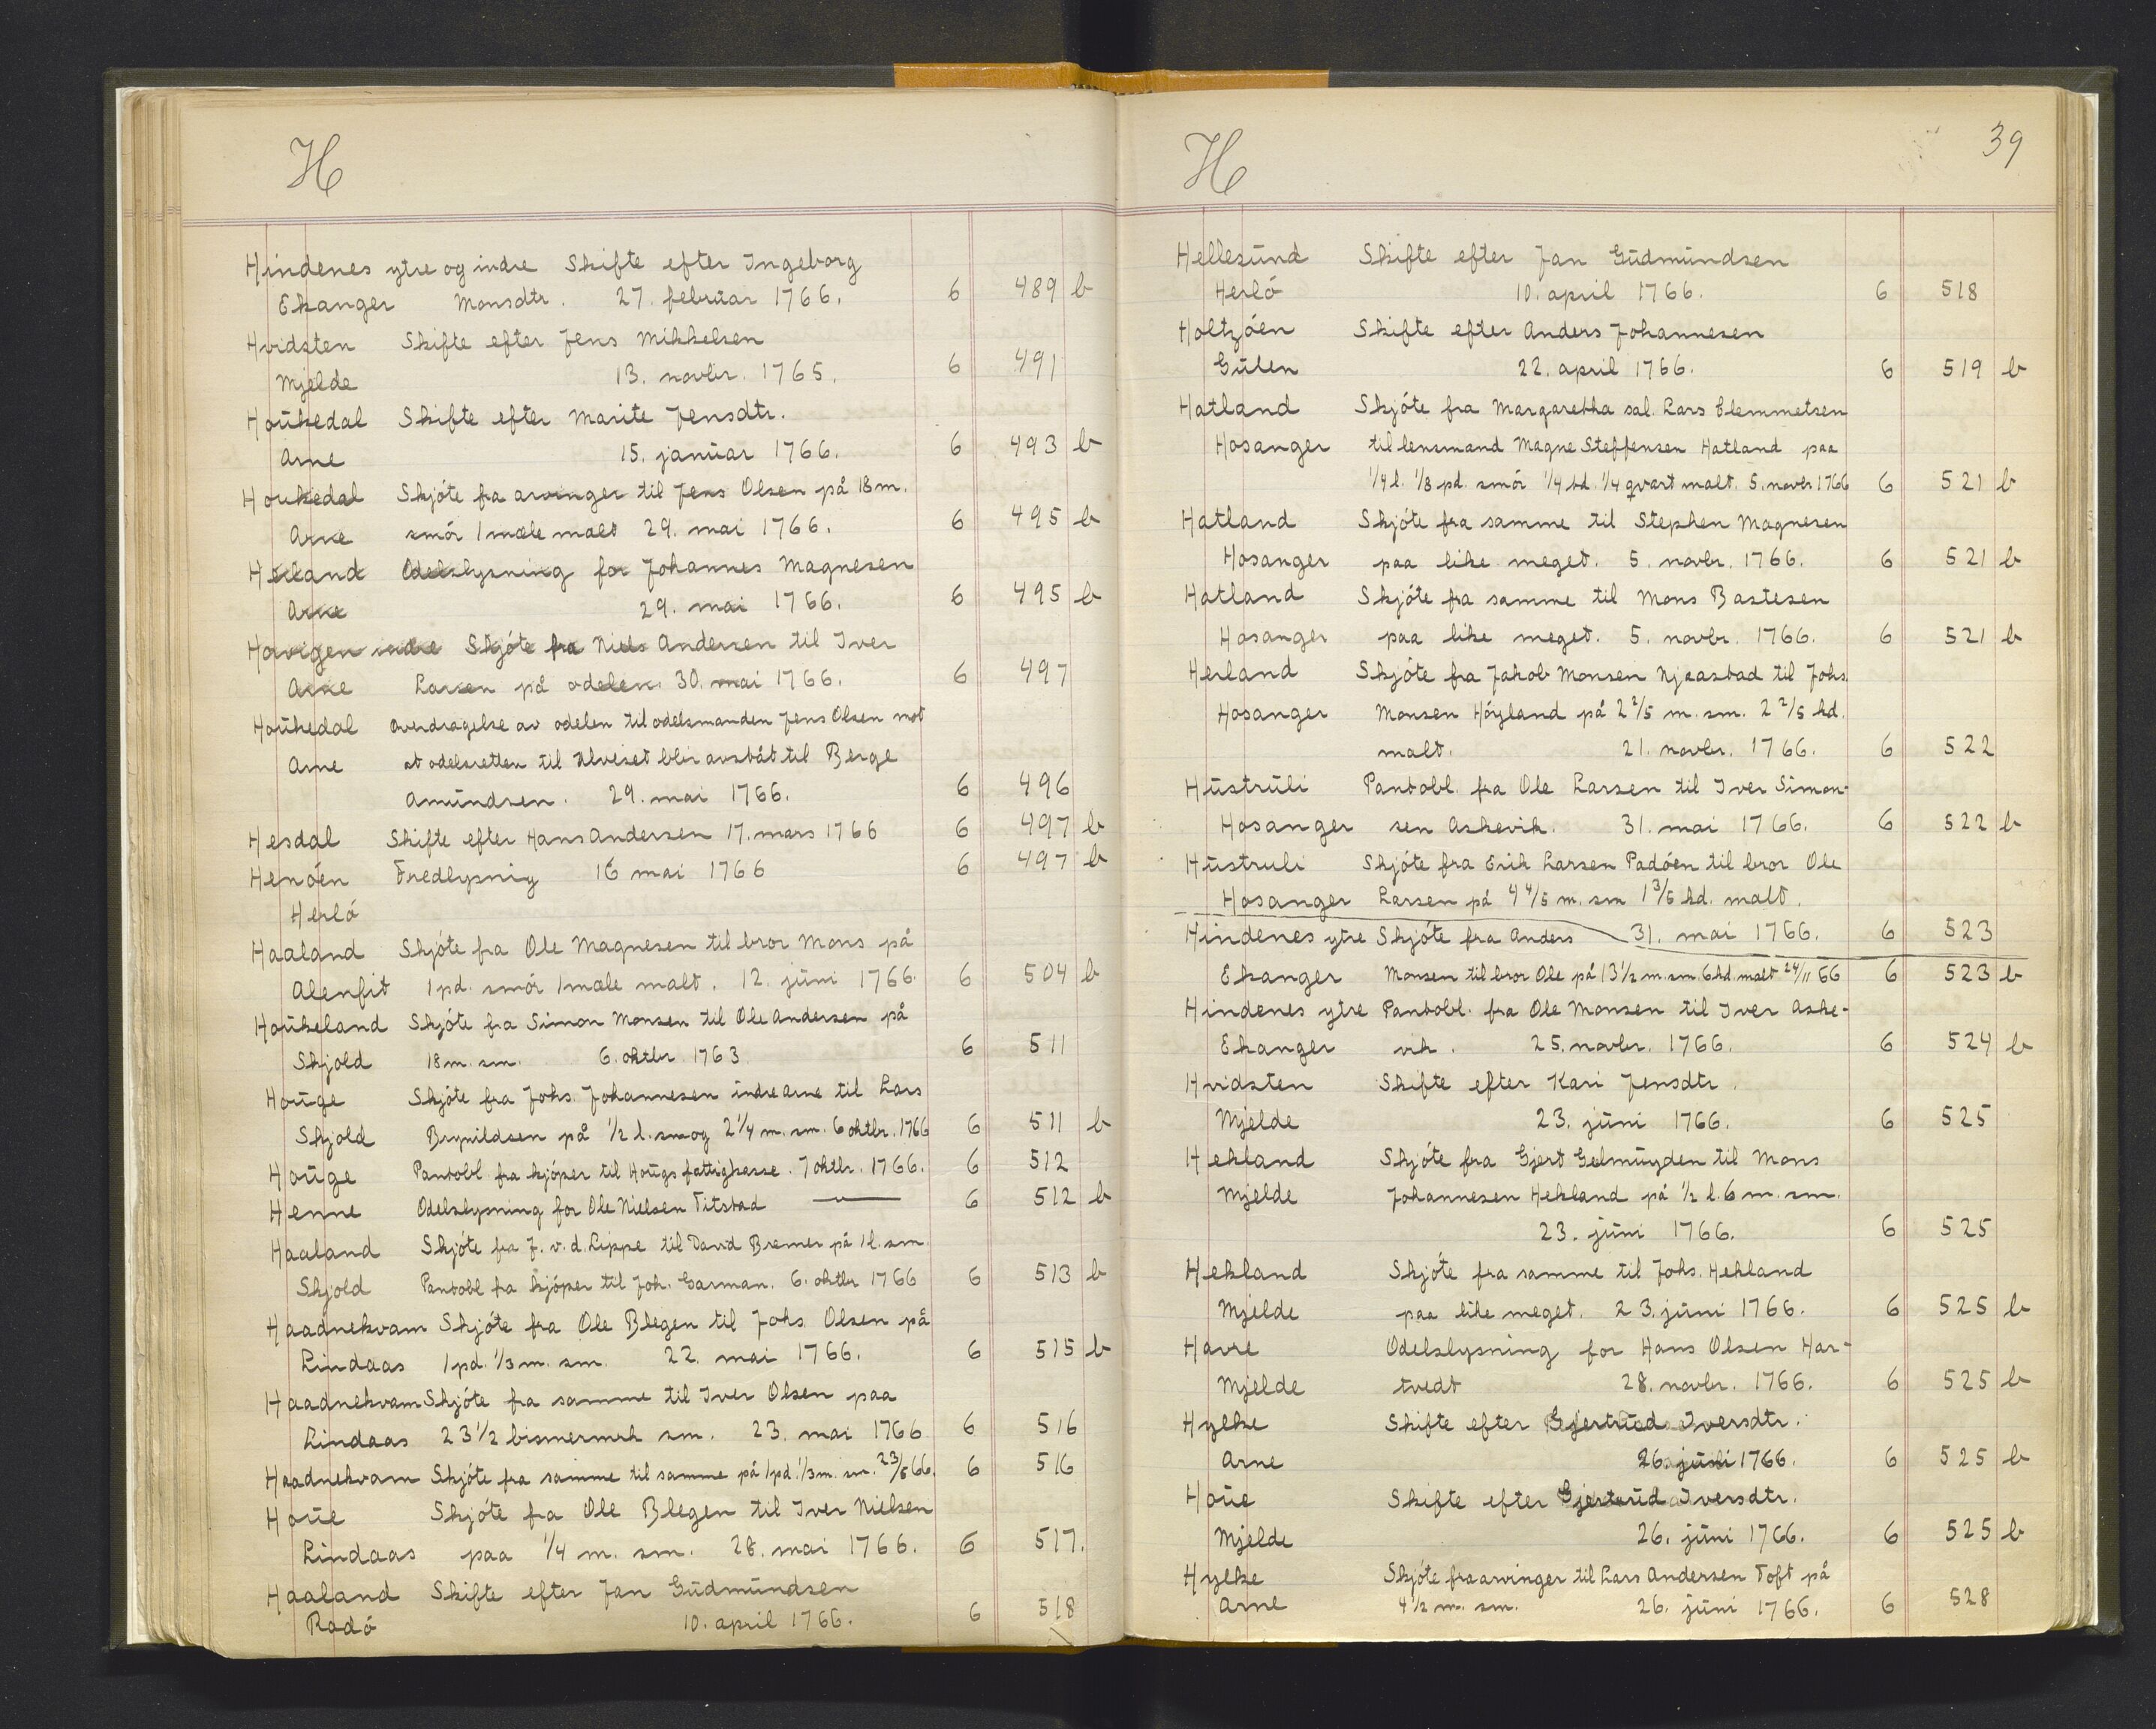 H
Hindenes ytre og indre Skifte efter Ingeborg
Ekanger Monsdtr. 27. februar 1766. 6 489 b
Hvidsten Skifte efter Jens Mikkelsen
Mjelde 13. novbr. 1765. 6 491
Houkedal Skifte efter Marite Jensdtr.
Arne 15. januar 1766. 6 493 b
Houkedal Skjöte fra arvinger til Jens Olsen på 18 m.
Arne smör 1 mæle malt 29. mai 1766. 6 495 b
Herland Odelslysning for Johannes Magnesen
Arne 29. mai 1766. 6 495 b
Horvigen indre Skjöte fra Niels Andersen til Iver
Arne Larsen på odelen 30. mai 1766. 6 497
Houkedal Overdragelse av odelen til odelsmanden Jens Olsen mot
Arne at odelsretten til Ulveset blir avståt til Berge
Amundsen. 29. mai 1766. 6 496
Hesdal Skifte efter Hans Andersen 17. mars 1766 6 497 b
Henöen Fredlysnig 16 mai 1766 6 497 b
Herlö
Haaland Skjöte fra Ole Magnesen til bror Mons på
Alenfit 1 pd. smör 1 mæle malt. 12. juni 1766. 6 504 b
Houkeland Skjöte fra Simon Monsen til Ole Andersen på
Skjold 18 m. sm. 6. oktbr. 1763 6 511
Houge Skjöte fra Johs. Johannesen indre Arne til Lars
Skjold Brynildsen på 1/2 l. sm og 2 1/4 m. sm. 6 oktbr. 1766 6 511 b
Houge Pantobl fra kjöper til Hougs fattigkasse. 7 oktbr. 1766. 6 512
Henne Odelslysning for Ole Nielsen Titstad —"— 6 512 b
Haaland Skjöte fra J. v. d. Lippe til David Bremer på 1 l. sm.
Skjold Pantobl fra kjöper til Joh. Garman. 6. oktbr 1766 6 513 b
Haadnekvam Skjöte fra Ole Blegen til Johs. Olsen på
Lindaas 1 pd. 1/3 m. sm. 22. mai 1766. 6 515 b
Haadnekvam Skjöte fra samme til Iver Olsen paa
Lindaas 23 1/2 bismermrk sm. 23. mai 1766 6 516
Haadnekvam Skjöte fra samme til samme på 1 pd. 1/3 m. sm. 23/5 66. 6 516
Houe Skjöte fra Ole Blegen til Iver Nielsen
Lindaas paa 1/4 m. sm. 28. mai 1766. 6 517.
Haaland Skifte efter Jan Gudmundsen
Radö 10. april 1766. 6 518
H 39
Hellesund Skifte efter Jan Gudmundsen
Herlö 10. april 1766. 6 518
Holtzöen Skifte efter Anders Johannesen
Gulen 22. april 1766. 6 519 b
Hatland Skjöte fra Margaretha sal. Lars Clemmetsen
Hosanger til lensmand Magne Steffensen Hatland paa
1/4 l. 1/8 pd. smör 1/4 hd. 1/4 qvart malt. 5. novbr 1766 6 521 b
Hatland Skjöte fra samme til Stephen Magnesen
Hosanger paa like meget. 5. novbr. 1766. 6 521 b
Hatland Skjöte fra samme til Mons Bastesen
Hosanger paa like meget. 5. novbr. 1766. 6 521 b
Herland Skjöte fra Jakob Monsen Njaastad til Johs.
Hosanger Monsen Höyland på 2 2/5 m. sm. 2 2/5 hd.
malt. 21. novbr. 1766. 6 522
Hustruli Pantobl. fra Ole Larsen til Iver Simon-
Hosanger sen Askevik. 31. mai 1766. 6 522 b
Hustruli Skjöte fra Erik Larsen Padöen til bror Ole
Hosanger Larsen på 4 4/5 m. sm 1 3/5 hd. malt.
Hindenes ytre Skjöte fra Anders 31. mai 1766. 6 523
Ekanger Monsen til bror Ole på 13 1/2 m. sm. 6 hd. malt 24/11 66 6 523 b
Hindenes ytre Pantobl. fra Ole Monsen til Iver Aske-
Ekanger vik. 25. novbr. 1766. 6 524 b
Hvidsten Skifte efter Kari Jensdtr.
Mjelde 23. juni 1766. 6 525
Hekland Skjöte fra Gjert Gelmuyden til Mons
Mjelde Johannesen Hekland på 1/2 l. 6 m. sm.
23. juni 1766. 6 525
Hekland Skjöte fra samme til Johs. Hekland
Mjelde paa like meget. 23. juni 1766. 6 525 b
Havre Odelslysning for Hans Olsen Har-
Mjelde tvedt 28. novbr. 1766. 6 525 b
Hylke Skifte efter Gjertrud Iversdtr.
Arne 26. juni 1766. 6 525 b
Houe Skifte efter Gjertrud Iversdtr.
Mjelde 26. juni 1766. 6 525 b
Hylke Skjöte fra arvinger til Lars Andersen Toft på
Arne 4 1/2 m. sm. 26. juni 1766. 6 528